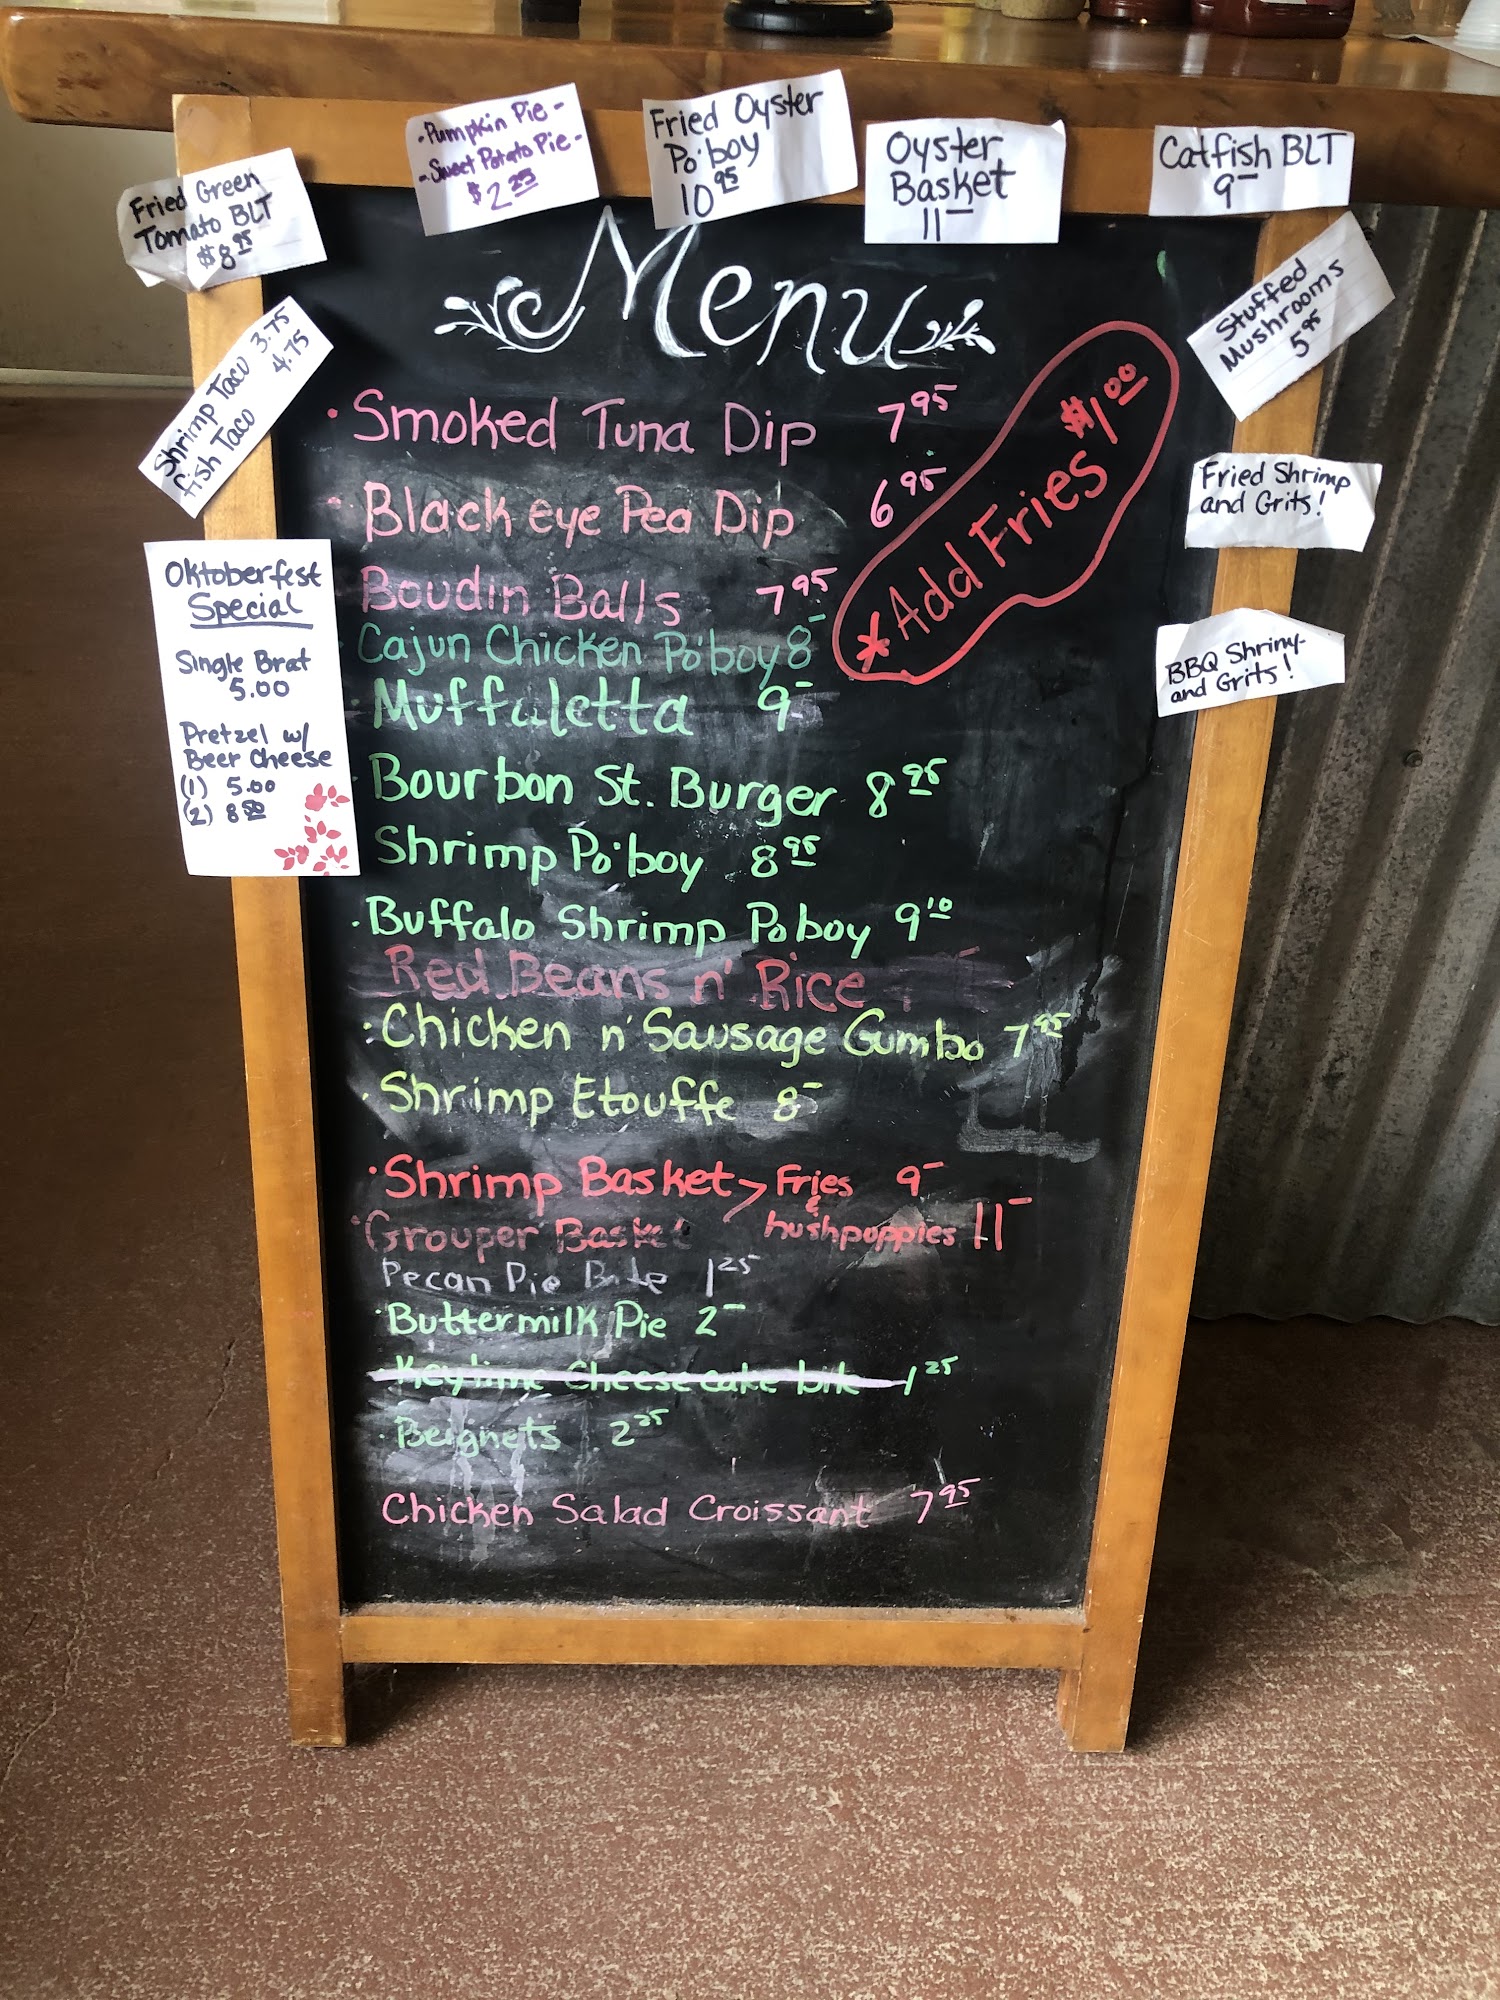 -Pumpkin Pie-
-Sweet Potato Pie-
$2.25
Fried Oyster
Po'boy
10.95
Oyster
Basket
11-
Catfish BLT
9-
Fried Green
Tomato BLT
$8.95
Shrimp Taco 3.75
fish Taco 4.75
Stuffed
Mushrooms
5.95
Fried Shrimp
and Grits!
BBQ Shrimp
and Grits!
Oktoberfest
Special
Single Brat
5.00
Pretzel w/
Beer Cheese
(1) 5.00
(2) 8.50
Menu
*Add Fries $1.00
· Smoked Tuna Dip 7.95
· Black eye Pea Dip 6.95
Boudin Balls 7.95
· Cajun Chicken Po'boy 8-
· Muffuletta 9-
· Bourbon St. Burger 8.95
Shrimp Po'boy 8.95
· Buffalo Shrimp Poboy 9.10
Red Beans n' Rice
· Chicken n' Sausage Gumbo 7.95
· Shrimp Etouffe 8-
· Shrimp Basket > Fries 9-
&
· Grouper Basket hushpuppies 11-
Pecan Pie Bite 1.25
· Buttermilk Pie 2-
· Keylime Cheesecake bite 1.25
· Beignets 2.25
Chicken Salad Croissant 7.95